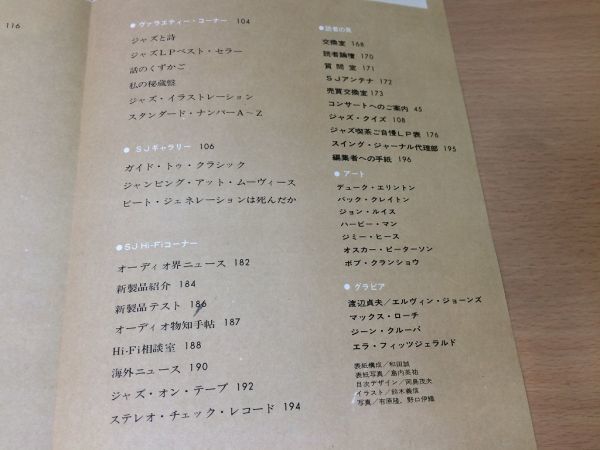 116
●ヴァラエティー・コーナー 104
ジャズと詩
ジャズLPベスト・セラー
話のくずかご
私の秘蔵盤
ジャズ・イラストレーション
スタンダード・ナンバーA〜Z
●SJギャラリー 106
ガイド・トゥ・クラシック
ジャンピング・アット・ムーヴィース
ビート・ジェネレーションは死んだか
●SJ Hi-Fiコーナー
オーディオ界ニュース 182
新製品紹介 184
新製品テスト 186
オーディオ物知手帖 187
Hi-Fi相談室 188
海外ニュース 190
ジャズ・オン・テープ 192
ステレオ・チェック・レコード 194
●読者の頁
交換室 168
読者論壇 170
質問室 171
SJアンテナ 172
売買交換室 173
コンサートへのご案内 45
ジャズ・クイズ 108
ジャズ喫茶ご自慢LP表 176
スイング・ジャーナル代理部 195
編集者への手紙 196
●アート
デューク・エリントン
バック・クレイトン
ジョン・ルイス
ハービー・マン
ジミー・ヒース
オスカー・ピーターソン
ボブ・クランショウ
●グラビア
渡辺貞夫/エルヴィン・ジョーンズ
マックス・ローチ
ジーン・クルーパ
エラ・フィッツジェラルド
表紙構成/和田誠
表紙写真/島内英祐
目次デザイン/岡島茂夫
イラスト/鈴木義信
写真/有原隆、野口伊織